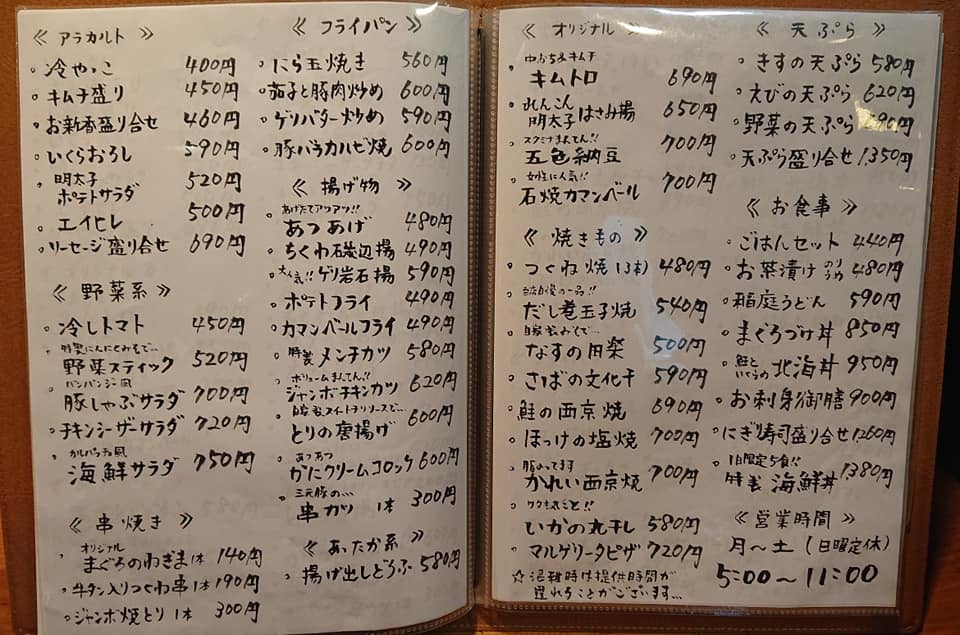 《 アラカルト 》
冷やっこ 400円
キムチ盛り 450円
お新香盛り合せ 460円
いくらおろし 590円
明太子
ポテトサラダ 520円
エイヒレ 500円
ソーセージ盛り合せ 690円
《 野菜系 》
冷しトマト 450円
特製にんにくみそで…
野菜スティック 520円
バンバンジー風
豚しゃぶサラダ 700円
チキンシーザーサラダ 720円
カルパッチョ風
海鮮サラダ 750円
《 串焼き 》
オリジナル
まぐろのねぎま 1本 140円
牛タン入りつくね串 1本 190円
ジャンボ焼とり 1本 300円
《 フライパン 》
にら玉焼き 560円
茄子と豚肉炒め 600円
ゲソバター炒め 590円
豚バラカルビ焼 600円
《 揚げ物 》
あげたてアツアツ!!
あつあげ 480円
ちくわ磯辺揚 490円
大人気!! ゲソ岩石揚 590円
ポテトフライ 490円
カマンベールフライ 490円
特製 メンチカツ 580円
ボリュームまんてん!!
ジャンボチキンカツ 620円
自家製スイートチリソースで…
とりの唐揚げ 600円
あつあつ
かにクリームコロッケ 600円
三元豚の…
串カツ 1本 300円
《 あったか系 》
揚げ出しどうふ 580円
《 オリジナル 》
キムトロ 690円
れんこん
明太子 はさみ揚 650円
スタミナまんてん!!
五色納豆 700円
女性に人気!!
石焼カマンベール 700円
《 焼きもの 》
つくね焼(3本) 480円
当店自慢の一品!!
だし巻玉子焼 540円
自家製みそで…
なすの田楽 500円
さばの文化干 590円
鮭の西京焼 690円
ほっけの塩焼 700円
脂のってます
かれい西京焼 700円
ワタもまるごと!!
いかの丸干し 580円
マルゲリータピザ 720円
☆混雑時は提供時間が
遅れることがございます…
《 天ぷら 》
きすの天ぷら 580円
えびの天ぷら 620円
野菜の天ぷら 690円
天ぷら盛り合せ 1.350円
《 お食事 》
ごはんセット 440円
お茶漬け のり うめ 480円
稲庭うどん 590円
まぐろづけ丼 850円
鮭と
いくらの 北海丼 950円
お刺身御膳 900円
にぎり寿司盛り合せ 1260円
1日限定5食!!
特製 海鮮丼 1380円
《 営業時間 》
月〜土 (日曜定休)
5:00〜11:00